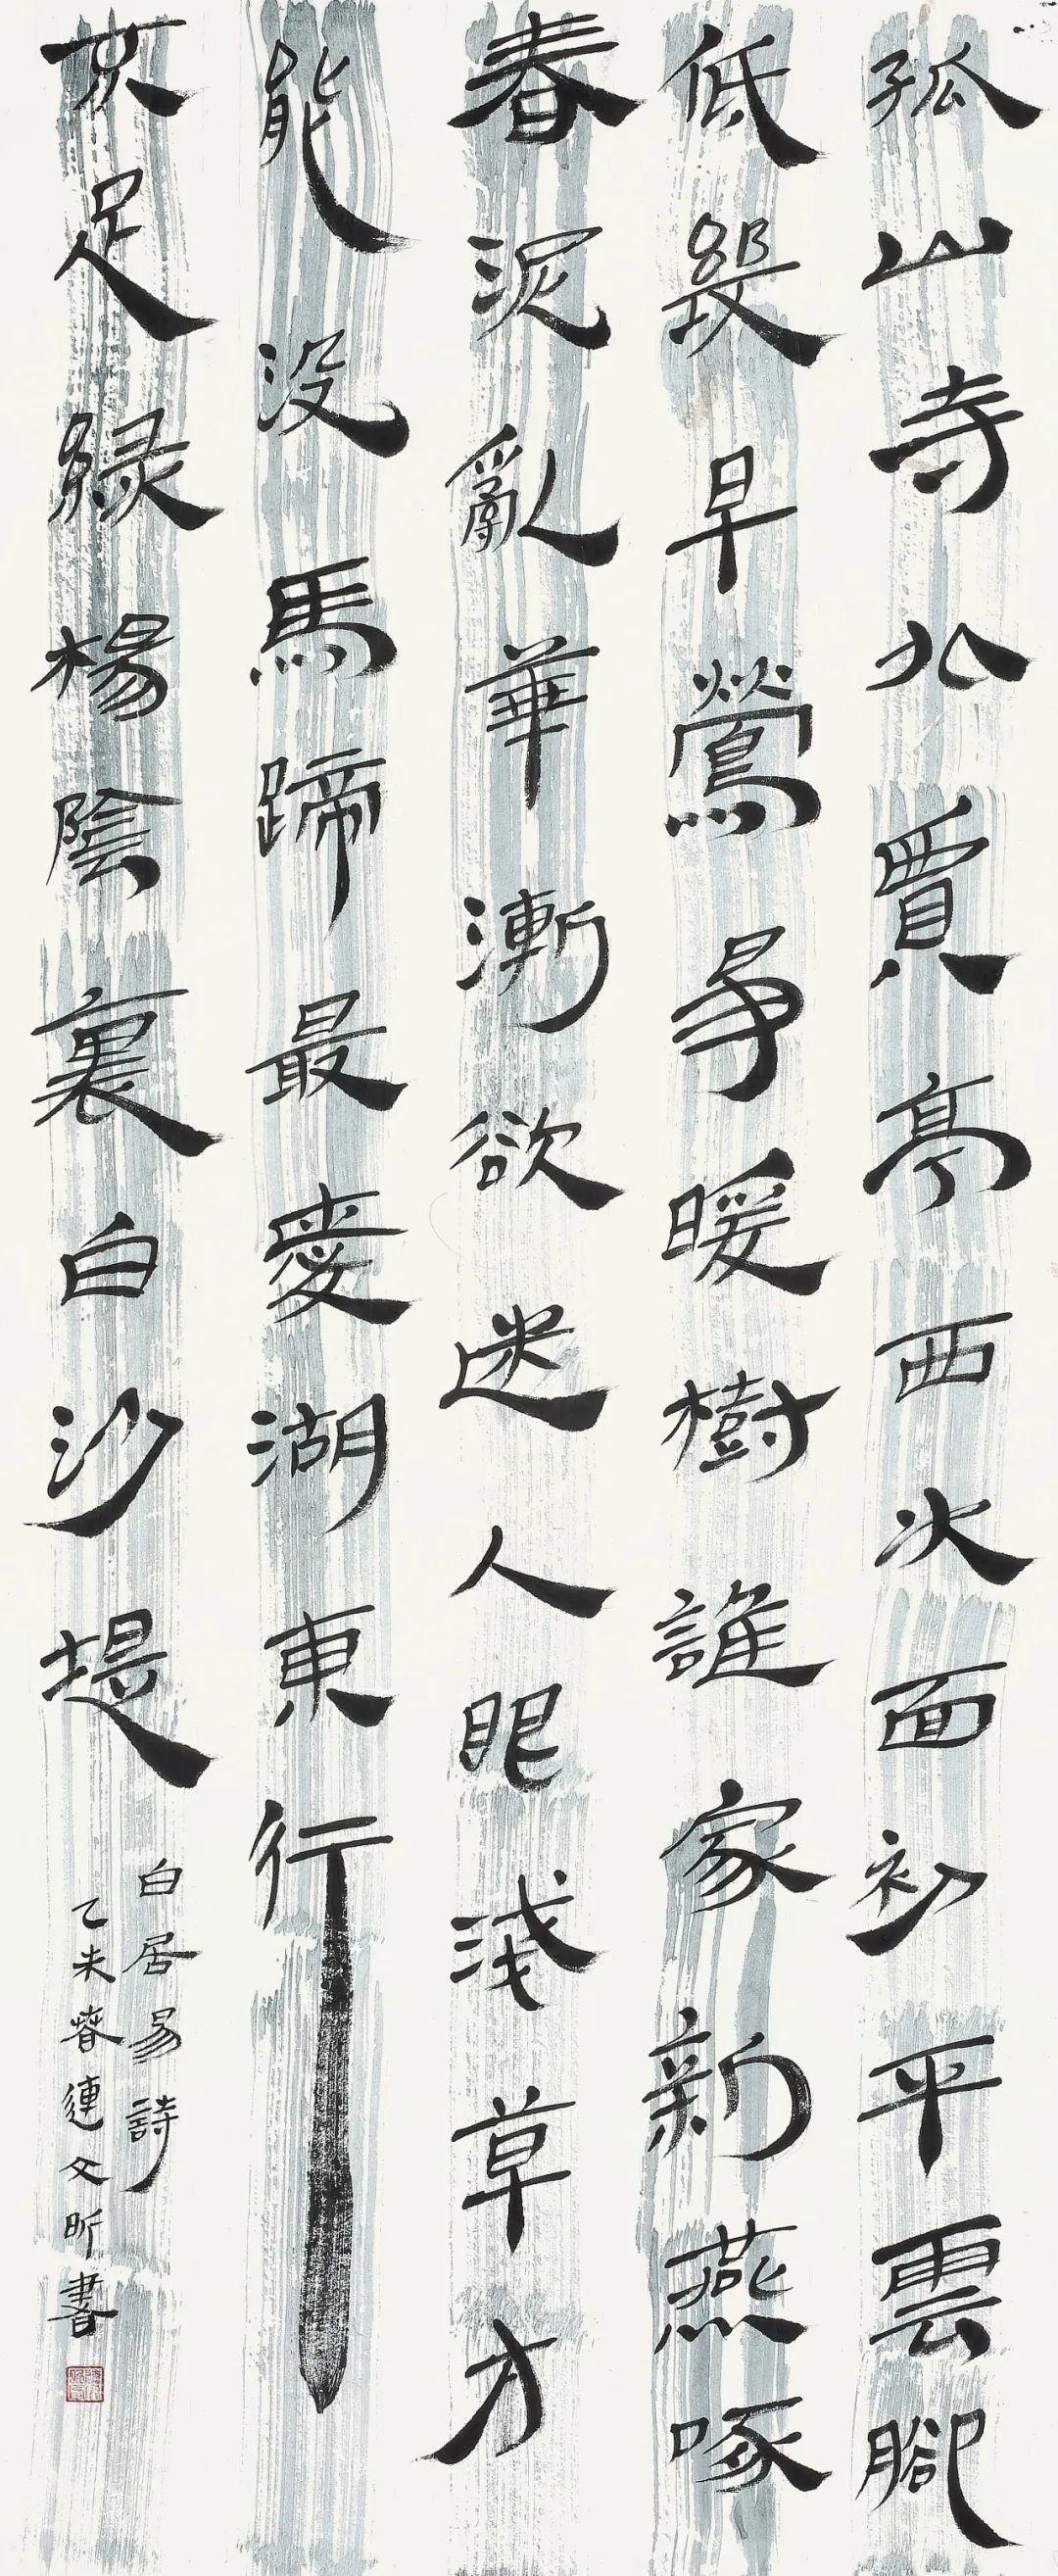 孤山寺北賈亭西水面初平雲腳
低早鶯爭暖樹誰家新燕啄
春泥亂華漸欲迷人眼淺草方
能没馬蹄最愛湖東行
不足綠楊陰裏白沙堤
白居易詩
乙未春連文昕書